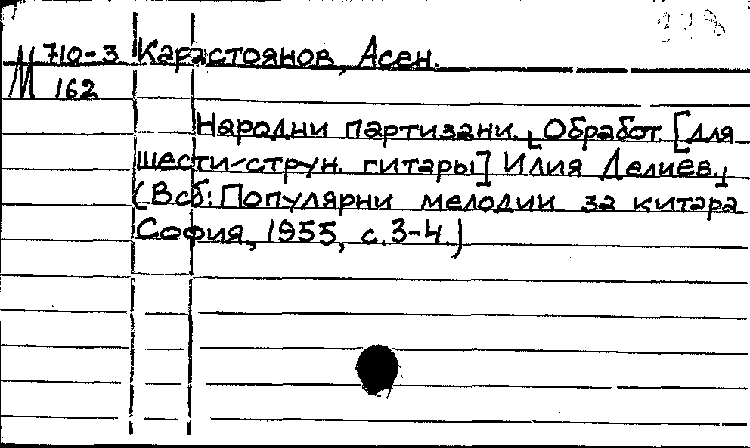 338
М 710-3 Карастоянов, Асен.
162
Народни партизани. [Обработ. [для
шести-струн. гитары] Илия Делиев.]
(В сб: Популярни мелодии за китара
София, 1955, с. 3-4.)